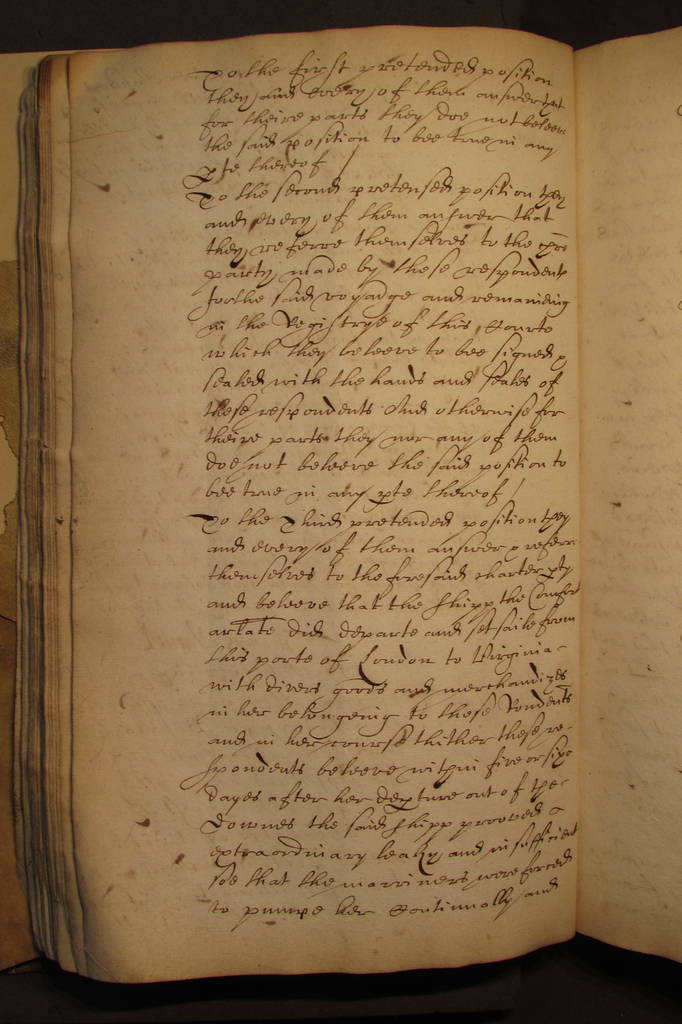 To the first pretended position
they and every of them answer that
for theire parts they doe not beleeve
the said position to bee true in any
pte thereof /
To the second pretensed position they
and every of them answer that
they referre themselves to the
party made by these respondents
for the said voyadge and remaineing
in the Registrye of this Courte
which they beleeve to bee signed &
sealed with the hands and seales of
these respondents And otherwise for
theire parts they nor any of them
doe not beleeve the said position to
bee true in any pte thereof /
To the Third pretended position they
and every of them answer & referre
themselves to the foresaid charter pty
and beleeve that the shipp the Comfort
arlate did departe and set saile from
this porte of London to Virginia
with divers goods and merchandizes
in her belongeing to these Rondents
and in her course thither these re-
spondents beleeve within five or sixe
dayes after her depture out of the
Downes the said shipp prooved
extraordinary leaky and insufficient
soe that the marriners were forced
to pumpe her Continually and